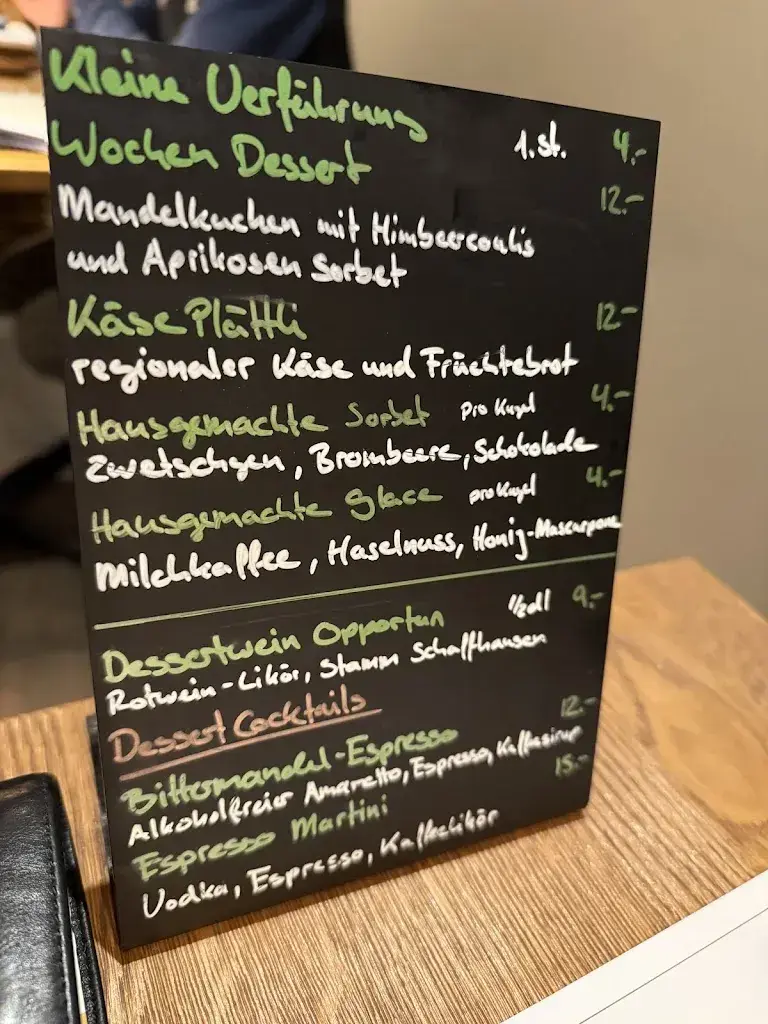 Kleine Verführung 1.st. 4.-
Wochen Dessert 12.-
Mandelkuchen mit Himbeercoulis
und Aprikosen Sorbet
Käse Plättli 12.-
regionaler Käse und Früchtebrot
Hausgemachte Sorbet pro Kugel 4.-
Zwetschgen, Brombeere, Schokolade
Hausgemachte Glace pro Kugel 4.-
Milchkaffee, Haselnuss, Honig-Mascarpone
Dessertwein Opportun 1/2dl 9.-
Rotwein-Likör, Stamm Schaffhausen
Dessert Cocktails
Bittermandel-Espresso 12.-
Alkoholfreier Amaretto, Espresso, Kaffeesirup
Espresso Martini 15.-
Vodka, Espresso, Kaffeelikör